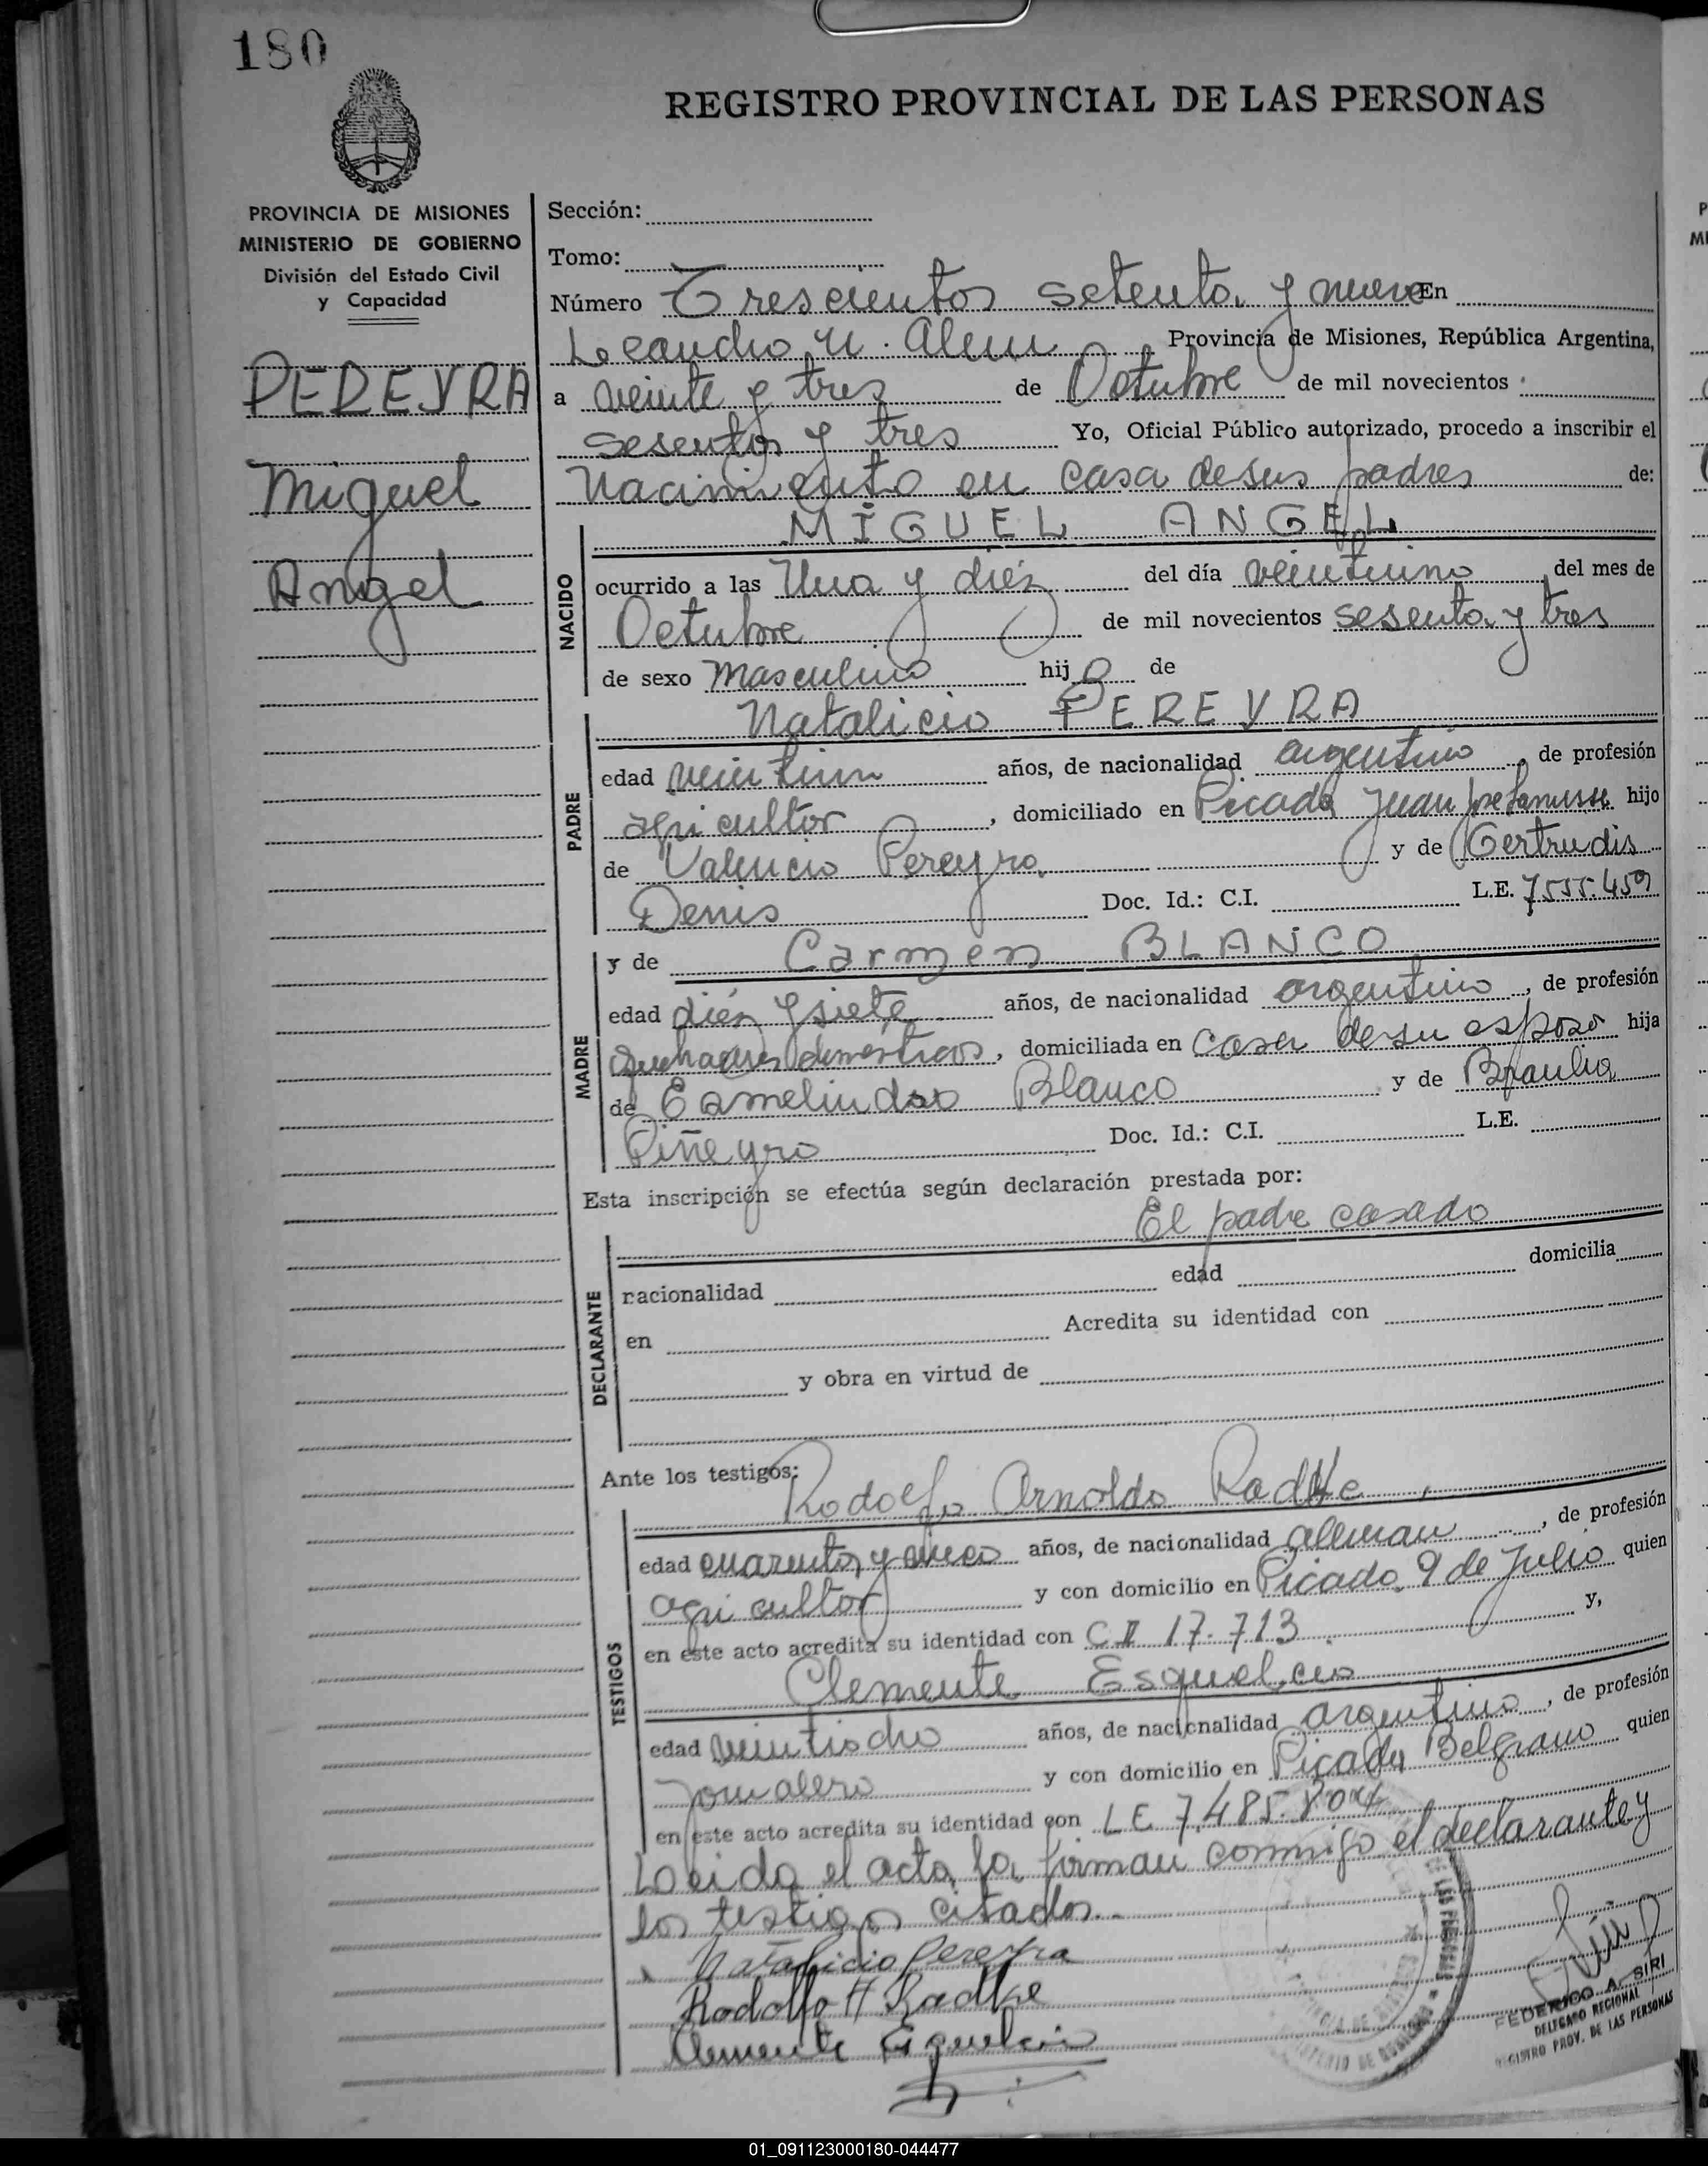 180
REGISTRO PROVINCIAL DE LAS PERSONAS
PROVINCIA DE MISIONES
MINISTERIO DE GOBIERNO
División del Estado Civil
y Capacidad
PEREYRA
Miguel
Angel
Sección:
Tomo:
Número Trescientos setenta y nueve En
Leandro N. Alem Provincia de Misiones, República Argentina,
a veinte y tres de Octubre de mil novecientos
sesenta y tres Yo, Oficial Público autorizado, procedo a inscribir el
Nacimiento en casa de sus padres de:
NACIDO
MIGUEL ANGEL
ocurrido a las Una y diéz del día veintiuno del mes de
Octubre de mil novecientos sesenta y tres
de sexo masculino hijo de
PADRE
Natalicio PEREYRA
edad veintiun años, de nacionalidad argentino, de profesión
agricultor, domiciliado en Picada Juan José Lanusse hijo
de Valencio Pereyra y de Gertrudis
Denis Doc. Id.: C.I. L.E. 7555.459
MADRE
y de Carmen BLANCO
edad diéz y siete años, de nacionalidad argentino, de profesión
quehaceres domésticos, domiciliada en casa de su esposo hija
de Ermelindo Blanco y de Braulia
Piñeyro Doc. Id.: C.I. L.E.
Esta inscripción se efectúa según declaración prestada por:
El padre casado
DECLARANTE
nacionalidad edad domicilia
en Acredita su identidad con
y obra en virtud de
Ante los testigos:
TESTIGOS
Rodolfo Arnoldo Radtke,
edad cuarenta y cinco años, de nacionalidad alleman, de profesión
agricultor y con domicilio en Picada 9 de Julio quien
en este acto acredita su identidad con CI 17.713. y,
Clemente Esquelcio
edad veintiocho años, de nacionalidad argentino, de profesión
Jornalero y con domicilio en Picada Belgrano quien
en este acto acredita su identidad con LE 7.485.804
Leida el acta, la firman conmigo el declarante y
los testigos citados.-
Natalicio Pereyra
Rodolfo A Radtke
Clemente Esquelcio
FEDERICO A. SIRI
DELEGADO REGIONAL
REGISTRO PROV. DE LAS PERSONAS
01_091123000180-044477